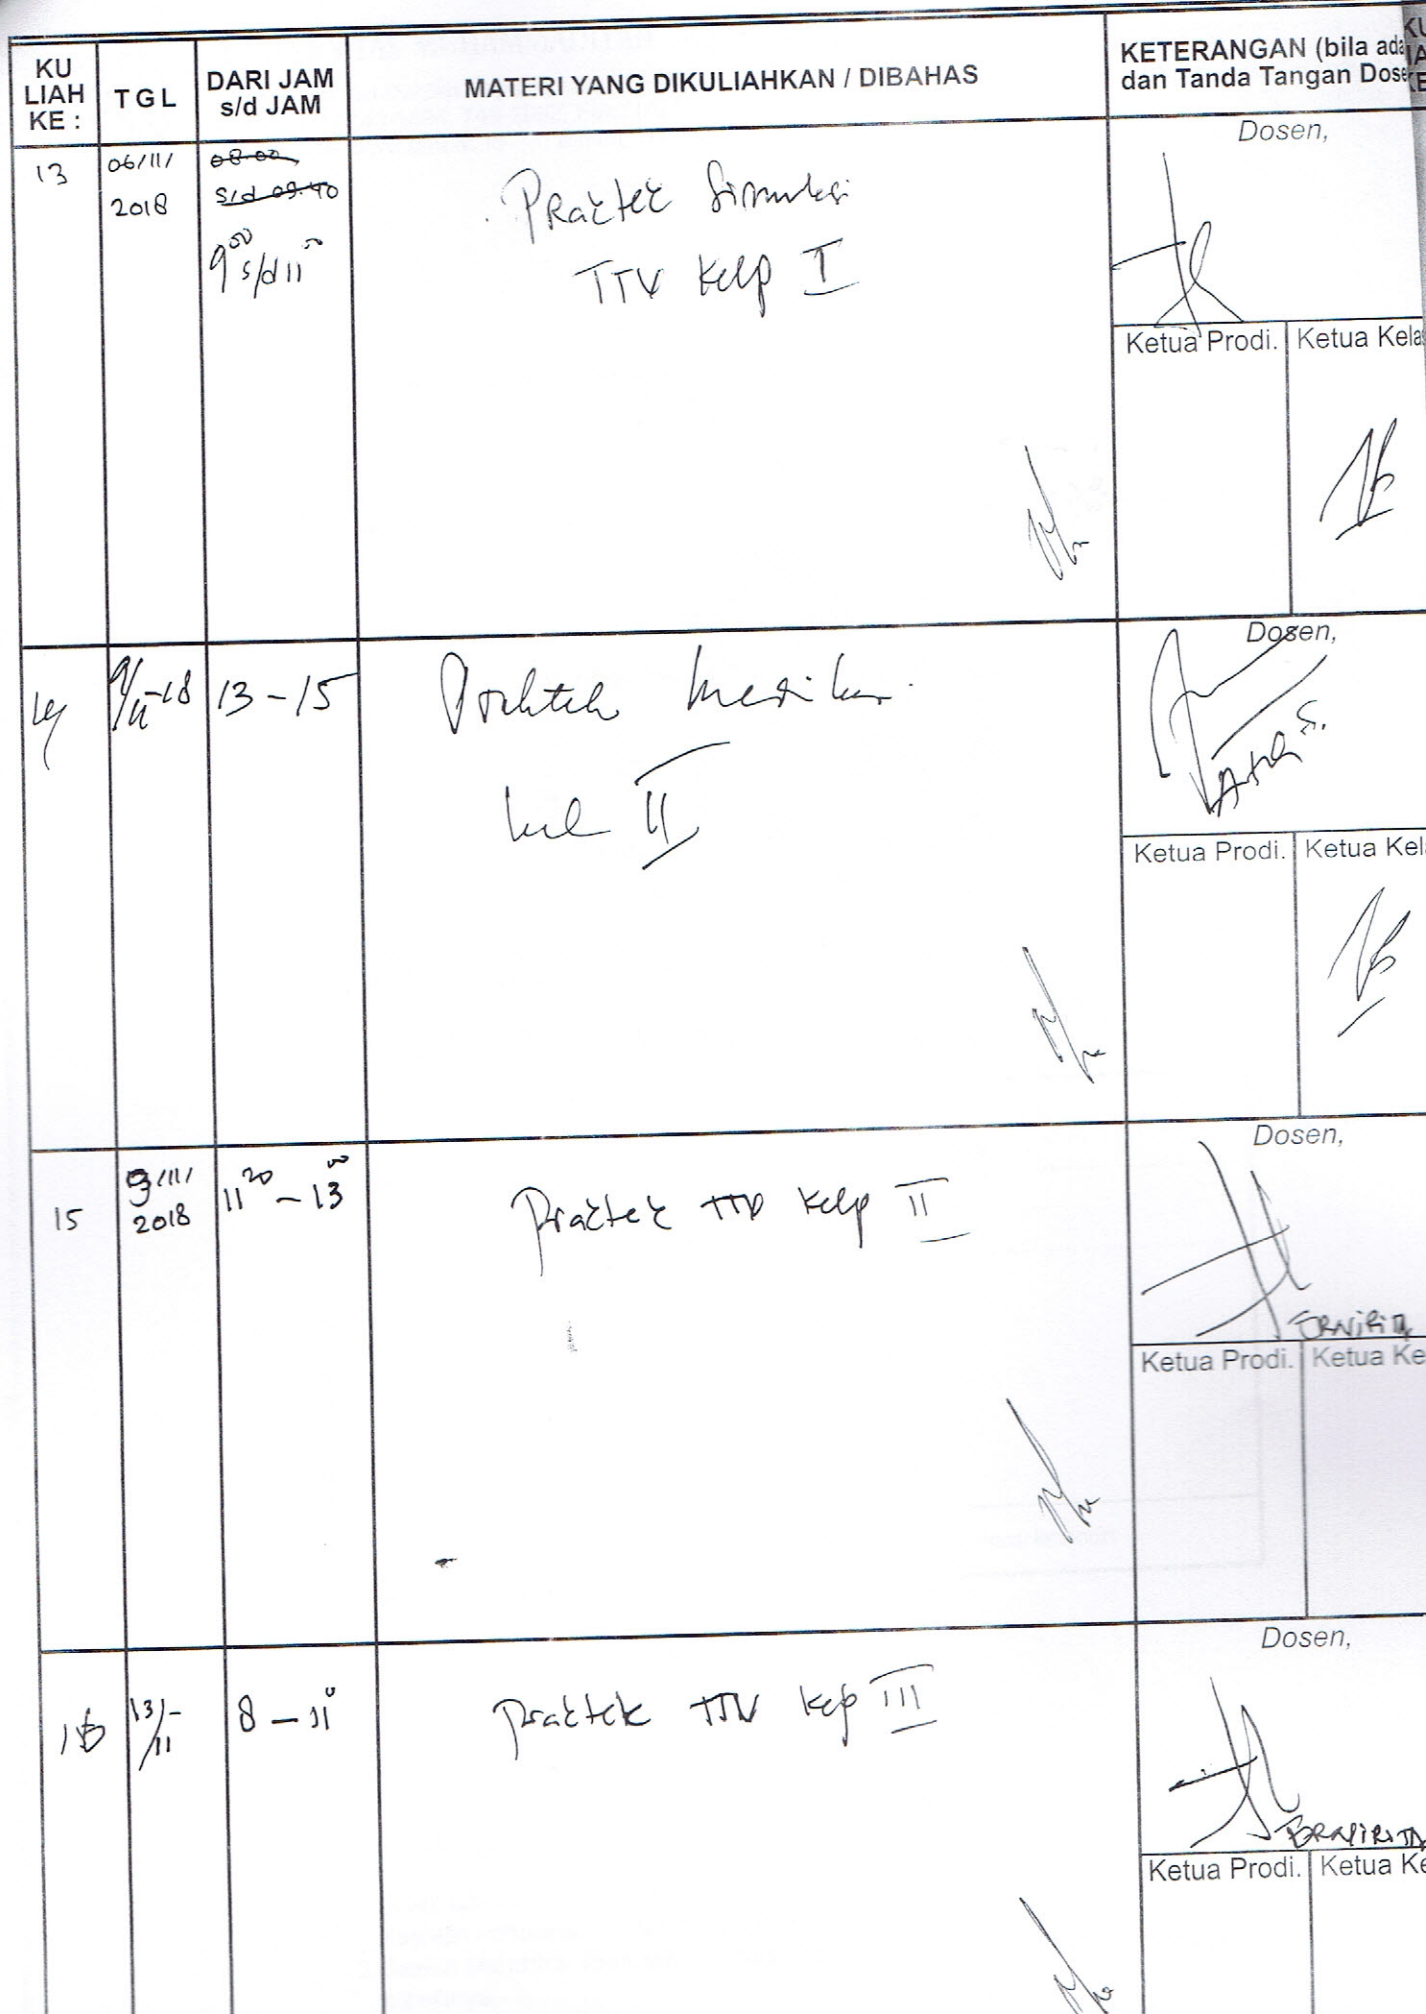 KU
LIAH
KE :
T G L
DARI JAM
s/d JAM
MATERI YANG DIKULIAHKAN / DIBAHAS
KETERANGAN (bila ada
dan Tanda Tangan Dose
13
06/11/
2018
08.00
s/d 09.40
9 00 s/d 11 00
Praktek Simulasi
TTV Kelp I
Dosen,
Ketua Prodi.
Ketua Kela
14
9/11-18
13 - 15
Praktek
kel II
Dosen,
Ketua Prodi.
Ketua Kel
15
9/11/
2018
11 20 - 13 00
Praktek TTV Kelp II
Dosen,
ERNIRITA
Ketua Prodi.
Ketua Ke
16
13/-
/11
8 - 11 0
Praktek TTV Kelp III
Dosen,
ERNIRITA
Ketua Prodi.
Ketua Ke